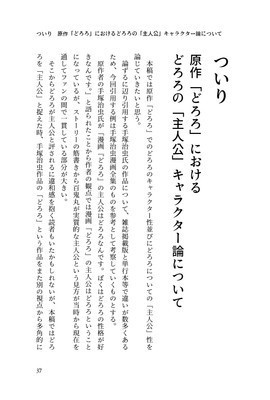 ついり　原作『どろろ』におけるどろろの「主人公」キャラクター論について
ついり
原作『どろろ』における
どろろの「主人公」キャラクター論について
本稿では原作『どろろ』でのどろろのキャラクター性並びにどろろについての「主人公」性を
論じていきたいと思う。
論ずるに辺り引用する手塚治虫氏の作品について、雑誌掲載版と単行本等で違いが数多くある
ため、今回引用する例は手塚治虫漫画全集のものを参考として考察していくものとする。
原作者の手塚治虫氏が「漫画『どろろ』の主人公はどろろなんです。ぼくはどろろの性格が好
きなんです。」と語られたことから作者の観点では漫画『どろろ』の主人公はどろろということ
になっているが、ストーリーの筋書きから百鬼丸が実質的な主人公という見方が当時から現在を
通してファンの間で一貫している部分が大きい。
そこからどろろが主人公と評されるに違和感を抱く読者もいたかもしれないが、本稿ではどろ
ろを「主人公」と捉えた時、手塚治虫作品の『どろろ』という作品をまた別の視点から多角的に
37